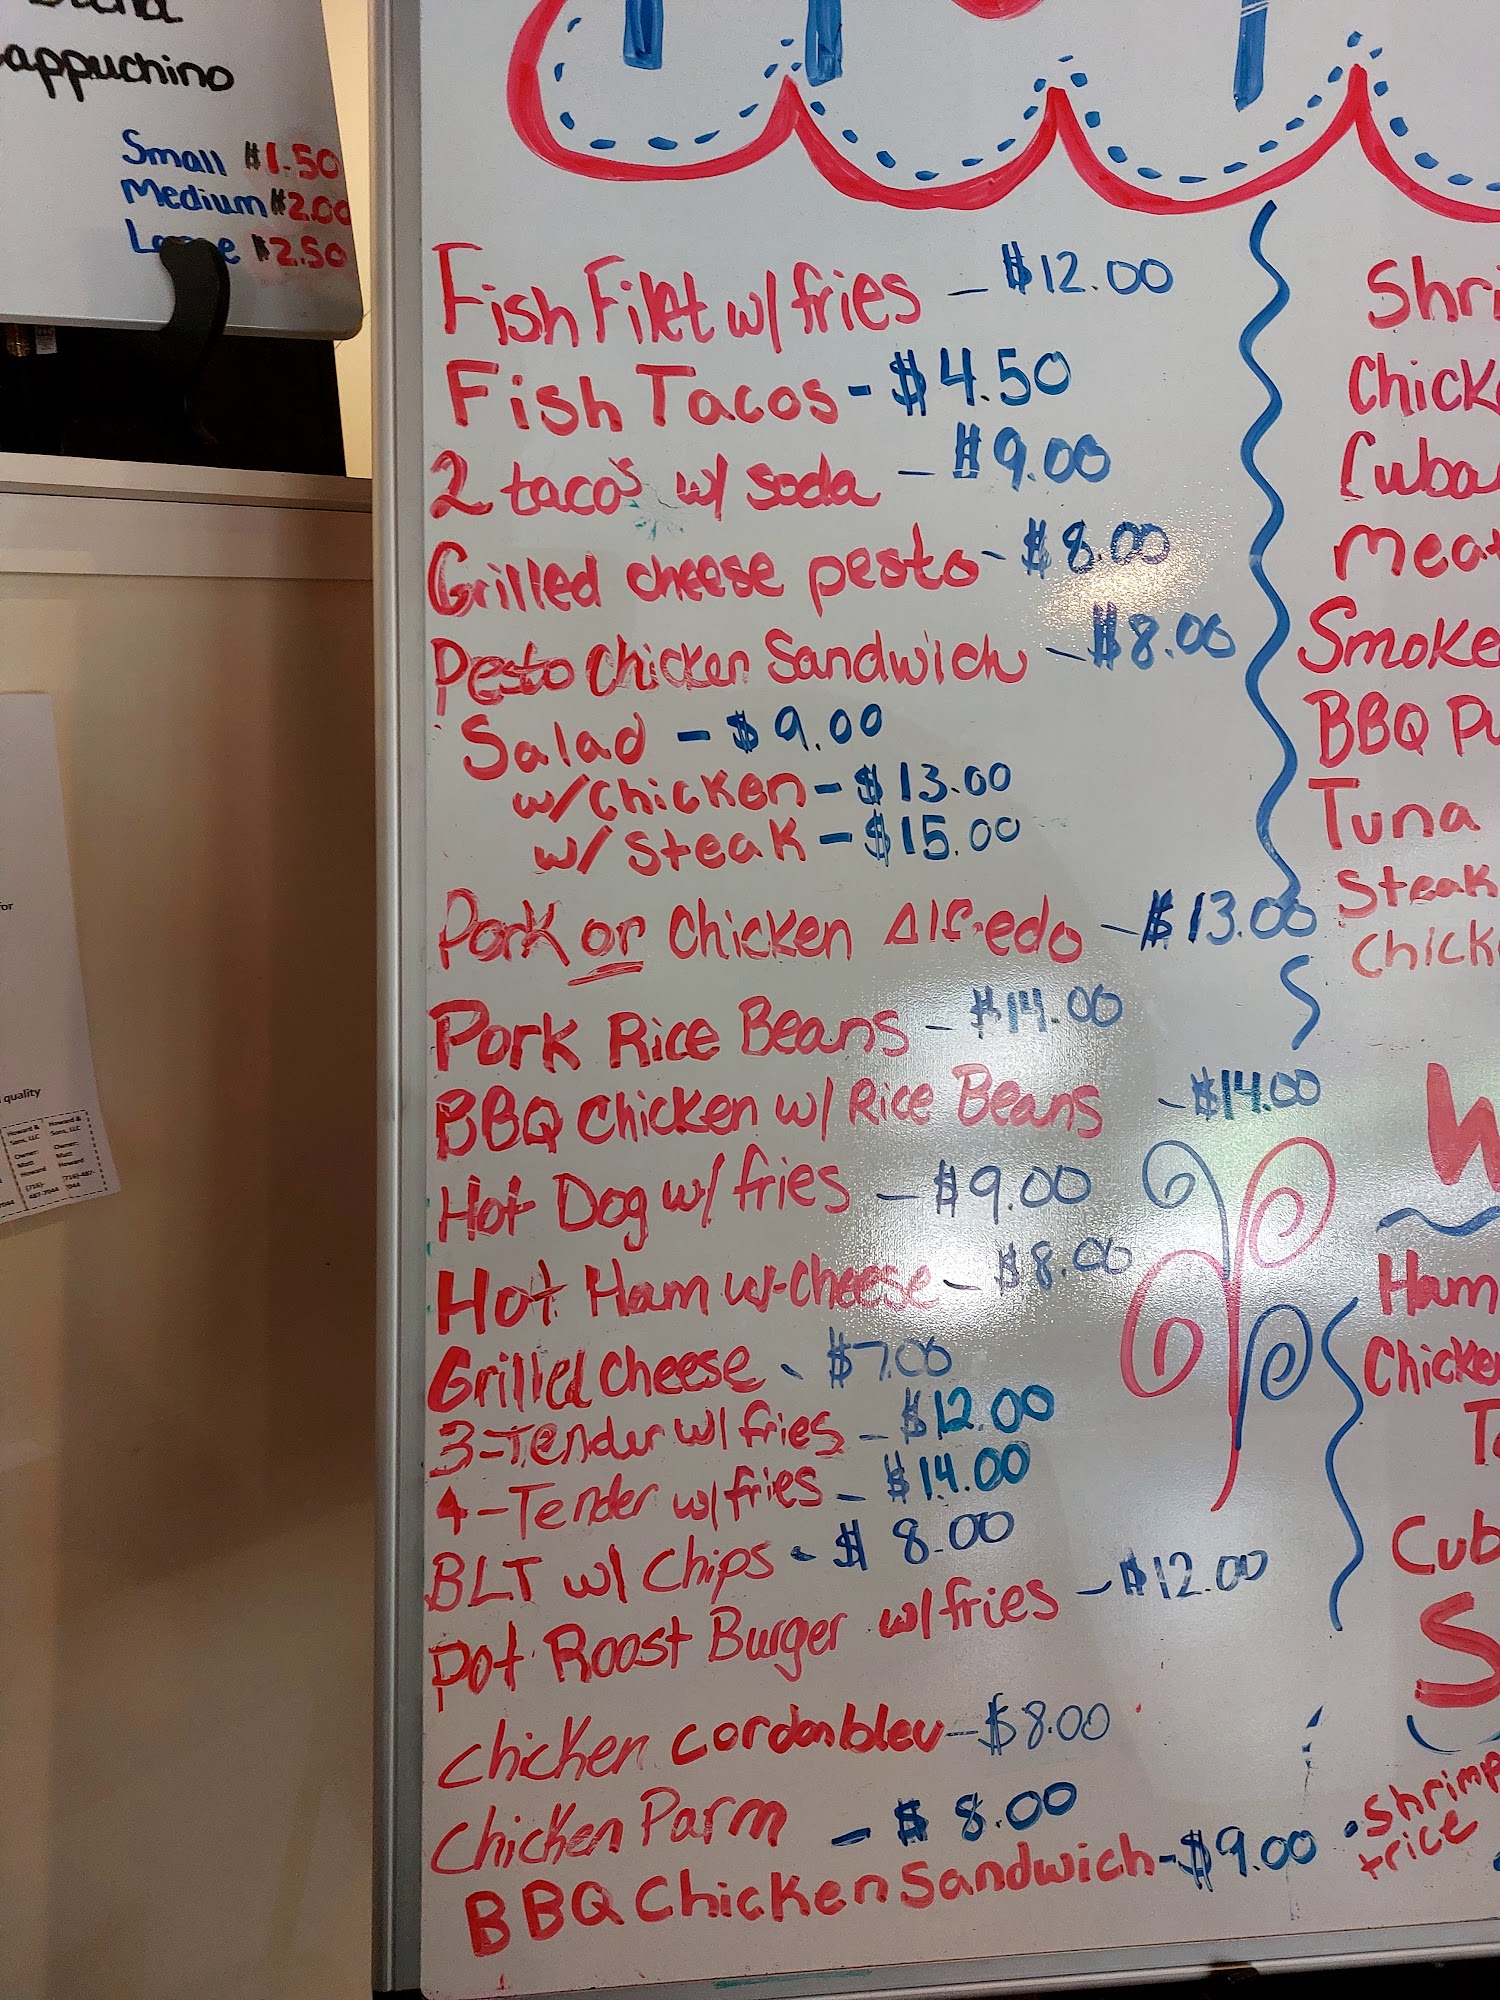 appuchino
Small $1.50
Medium $2.00
$2.50
Fish Filet w/ fries - $12.00
Fish Tacos - $4.50
2 taco's w/ soda - $9.00
Grilled cheese pesto - $8.00
Pesto Chicken Sandwich - $8.00
Salad - $9.00
w/ Chicken - $13.00
w/ Steak - $15.00
Pork or Chicken Alfredo - $13.00
Pork Rice Beans - $14.00
BBQ Chicken w/ Rice Beans - $14.00
Hot Dog w/ fries - $9.00
Hot Ham w-cheese - $8.00
Grilled Cheese - $7.00
3-Tender w/ fries - $12.00
4-Tender w/ fries - $14.00
BLT w/ Chips - $8.00
Pot Roost Burger w/ fries - $12.00
Chicken cordonbleu - $8.00
Chicken Parm - $8.00
BBQ Chicken Sandwich - $9.00
Shri
Chick
Cuba
Meat
Smoke
BBQ Pu
Tuna
Steak
Chick
W
Ham
Chicken
T
Cub
S
• Shrimp
+ rice
for
quality
Howard & Sons, LLC
Owner: Matt Howard
(716)-487-7044
Howard & Sons, LLC
Owner: Matt Howard
(716)-487-7044